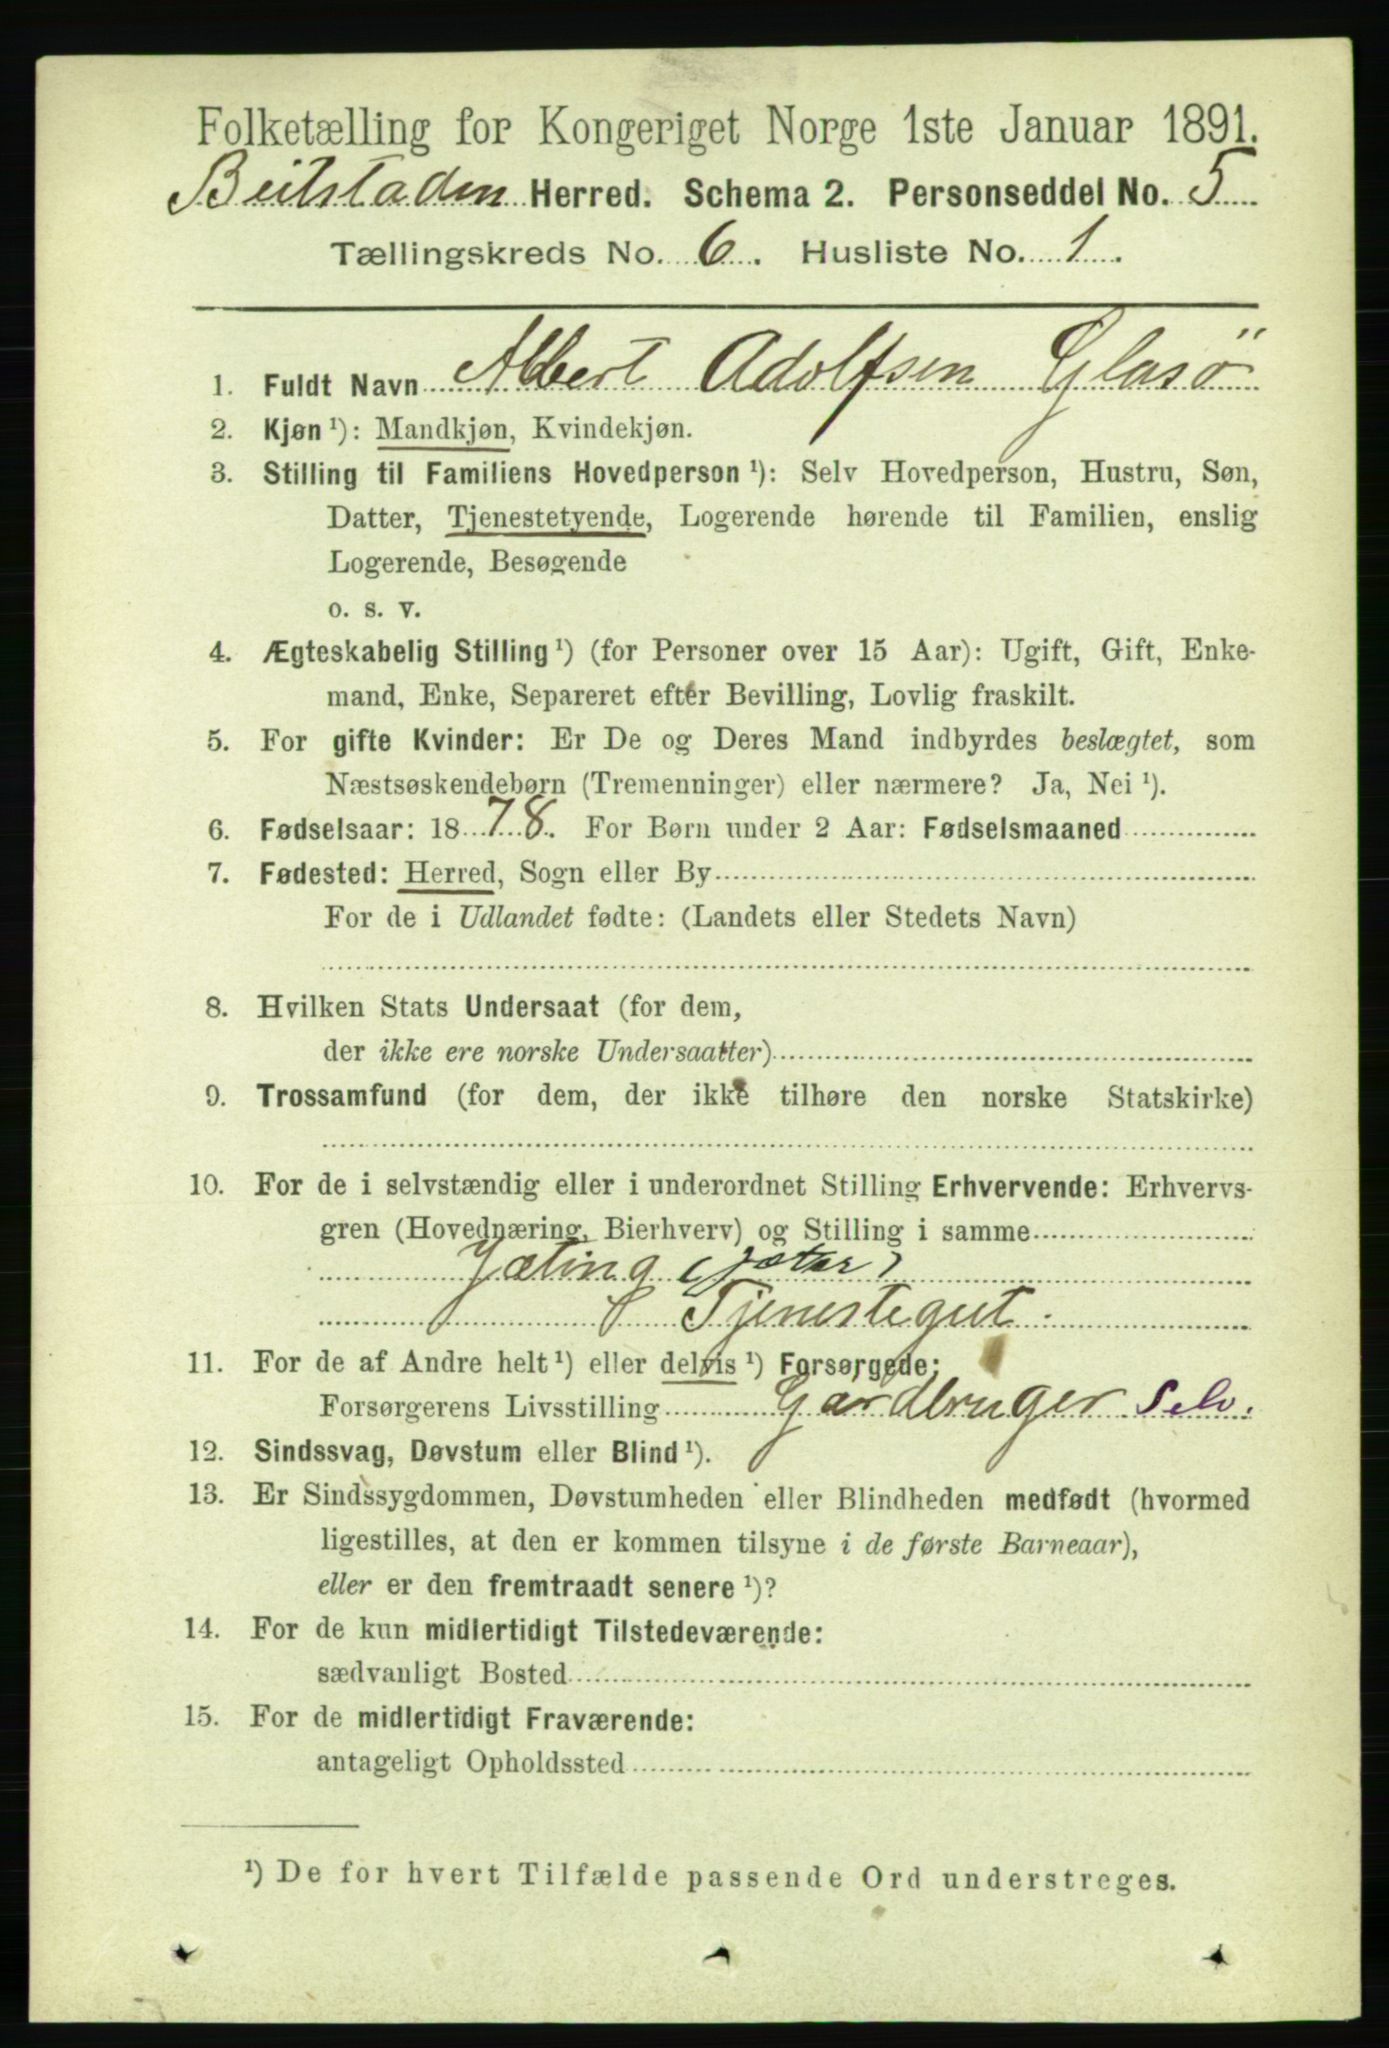 Folketælling for Kongeriget Norge 1ste Januar 1891.
Beitstaden Herred. Schema 2. Personseddel No. 5
Tællingskreds No. 6. Husliste No. 1.
1. Fuldt Navn Albert Adolfsen Glasö
2. Kjøn ¹): Mandkjøn, Kvindekjøn.
3. Stilling til Familiens Hovedperson ¹): Selv Hovedperson, Hustru, Søn,
Datter, Tjenestetyende, Logerende hørende til Familien, enslig
Logerende, Besøgende
o. s. v.
4. Ægteskabelig Stilling ¹) (for Personer over 15 Aar): Ugift, Gift, Enke-
mand, Enke, Separeret efter Bevilling, Lovlig fraskilt.
5. For gifte Kvinder: Er De og Deres Mand indbyrdes beslægtet, som
Næstsøskendebørn (Tremenninger) eller nærmere? Ja, Nei ¹).
6. Fødselsaar: 1878. For Børn under 2 Aar: Fødselsmaaned
7. Fødested: Herred, Sogn eller By
For de i Udlandet fødte: (Landets eller Stedets Navn)
8. Hvilken Stats Undersaat (for dem,
der ikke ere norske Undersaatter)
9. Trossamfund (for dem, der ikke tilhøre den norske Statskirke)
10. For de i selvstændig eller i underordnet Stilling Erhvervende: Erhvervs-
gren (Hovednæring, Bierhverv) og Stilling i samme
Jæting (jæter)
Tjenestegut.
11. For de af Andre helt ¹) eller delvis ¹) Forsørgede:
Forsørgerens Livsstilling Gårdbruger Selv.
12. Sindssvag, Døvstum eller Blind ¹).
13. Er Sindssygdommen, Døvstumheden eller Blindheden medfødt (hvormed
ligestilles, at den er kommen tilsyne i de første Barneaar),
eller er den fremtraadt senere ¹)?
14. For de kun midlertidigt Tilstedeværende:
sædvanligt Bosted
15. For de midlertidigt Fraværende:
antageligt Opholdssted
¹) De for hvert Tilfælde passende Ord understreges.